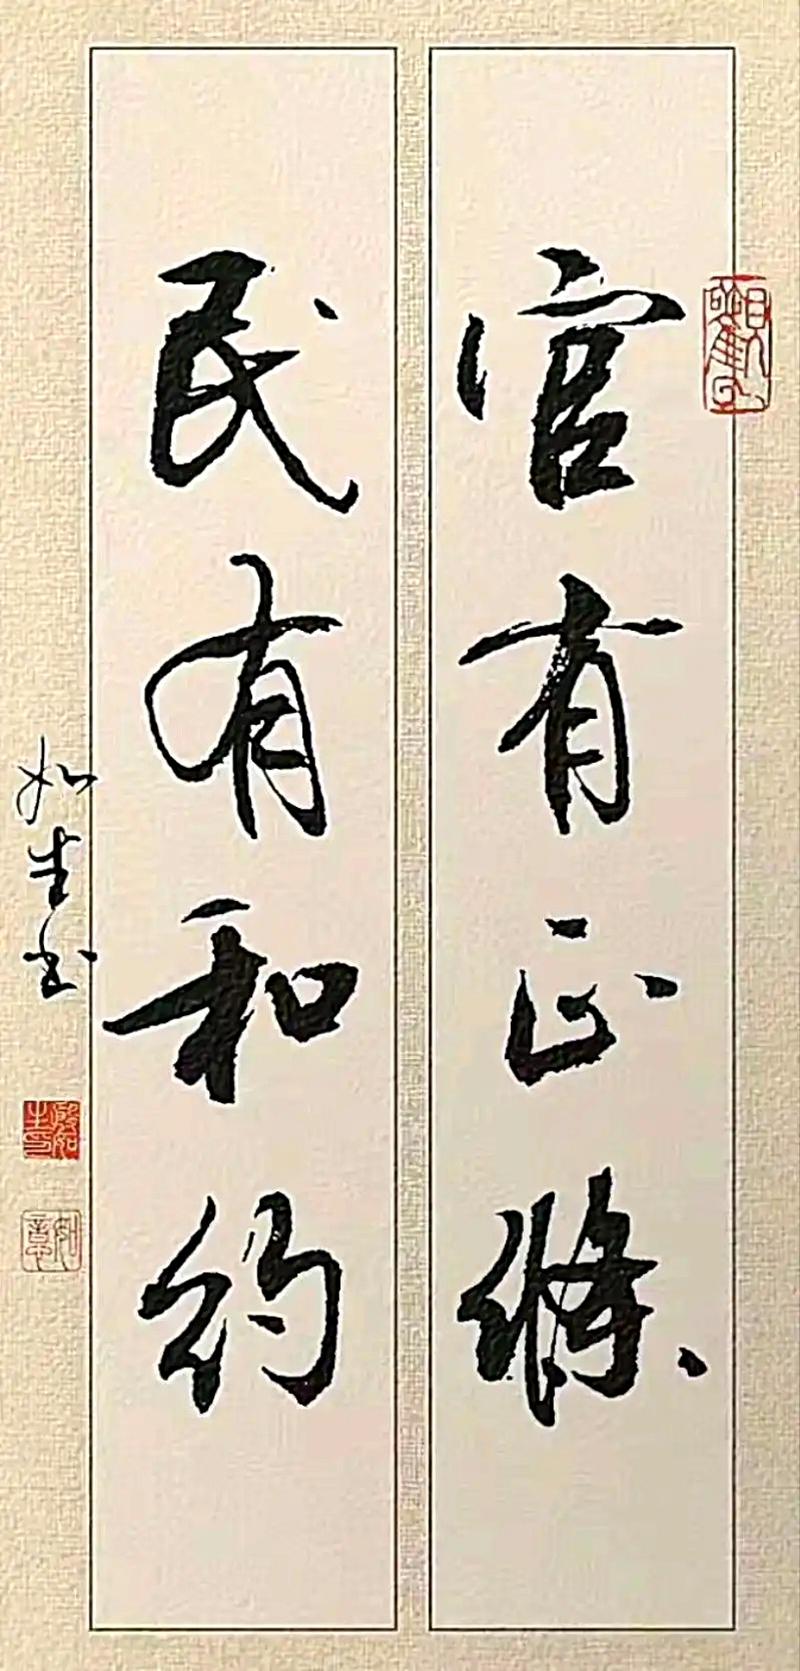 官有正條
民有和約
如生书